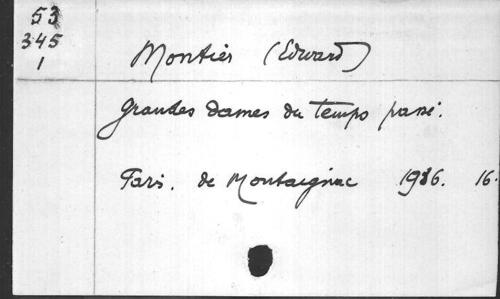 53
345
1
Montier (Edward)
Grandes dames du temps passé.
Paris. de Montaignac 1926. 16.